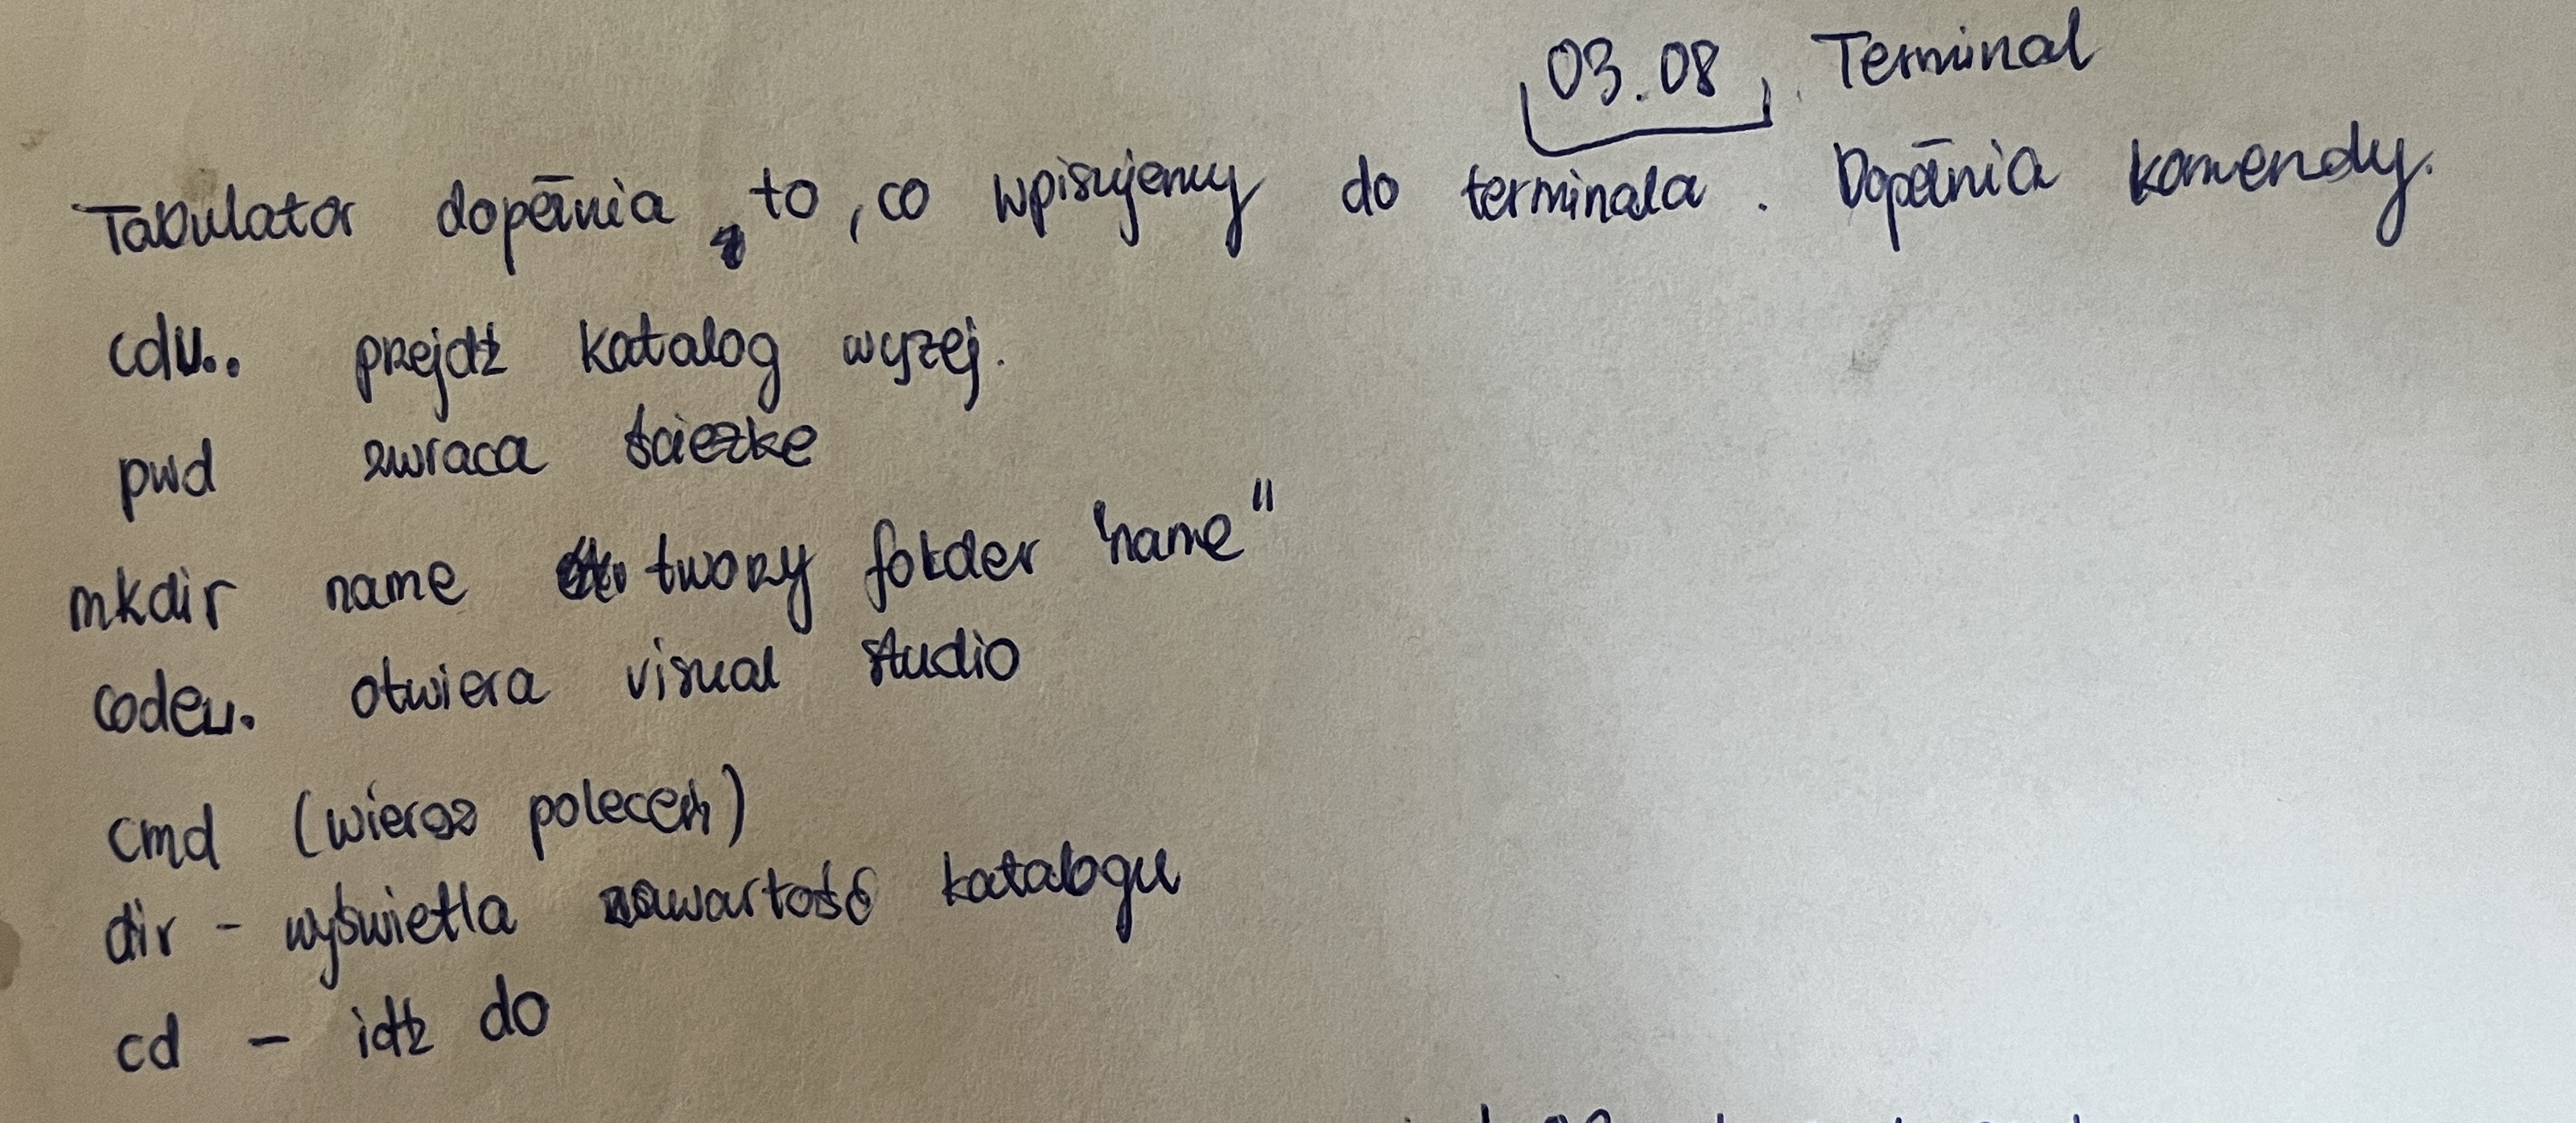 03.08 Terminal
Tabulator dopełnia to, co wpisujemy do terminala. Dopełnia komendy.
cd␣.. przejdź katalog wyżej.
pwd zwraca ścieżkę
mkdir name tworzy folder "name"
code␣. otwiera visual studio
cmd (wiersz poleceń)
dir - wyświetla zawartość katalogu
cd - idź do